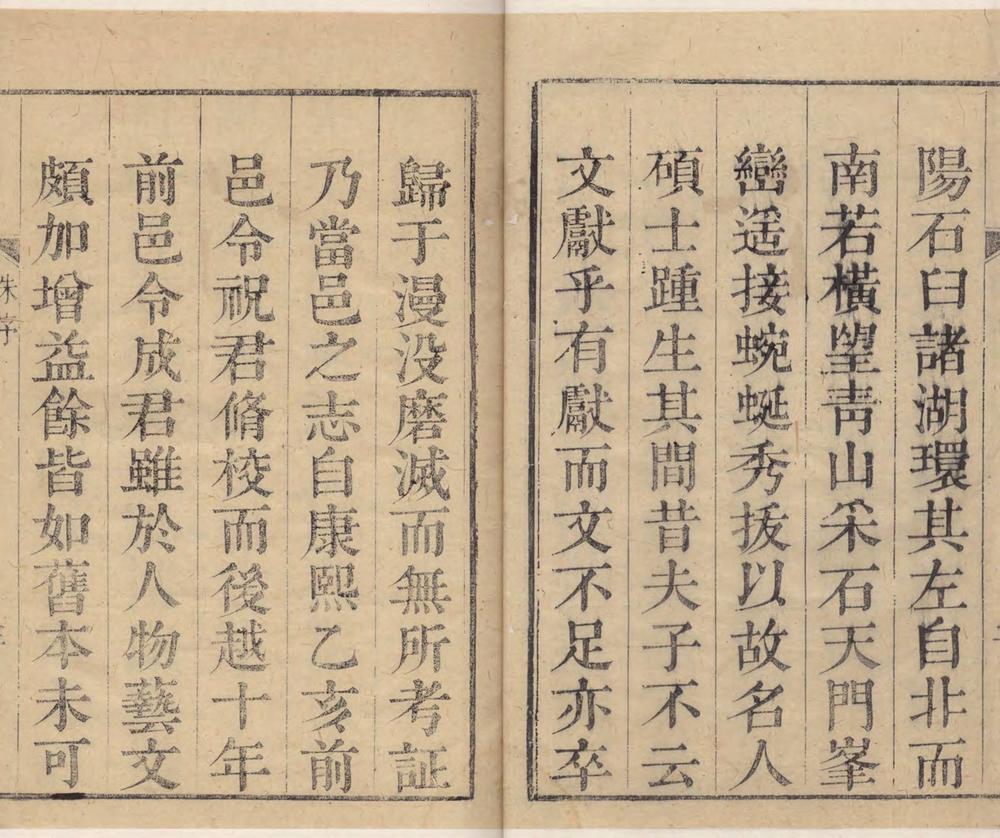 陽石臼諸湖環其左自非而
南若橫望靑山采石天門峯
巒遥接蜿蜒秀拔以故名人
碩士踵生其間昔夫子不云
文獻乎有獻而文不足亦卒
歸于漫没磨滅而無所考証
乃當邑之志自康熙乙亥前
邑令祝君脩校而後越十年
前邑令成君雖於人物藝文
頗加增益餘皆如舊本未可